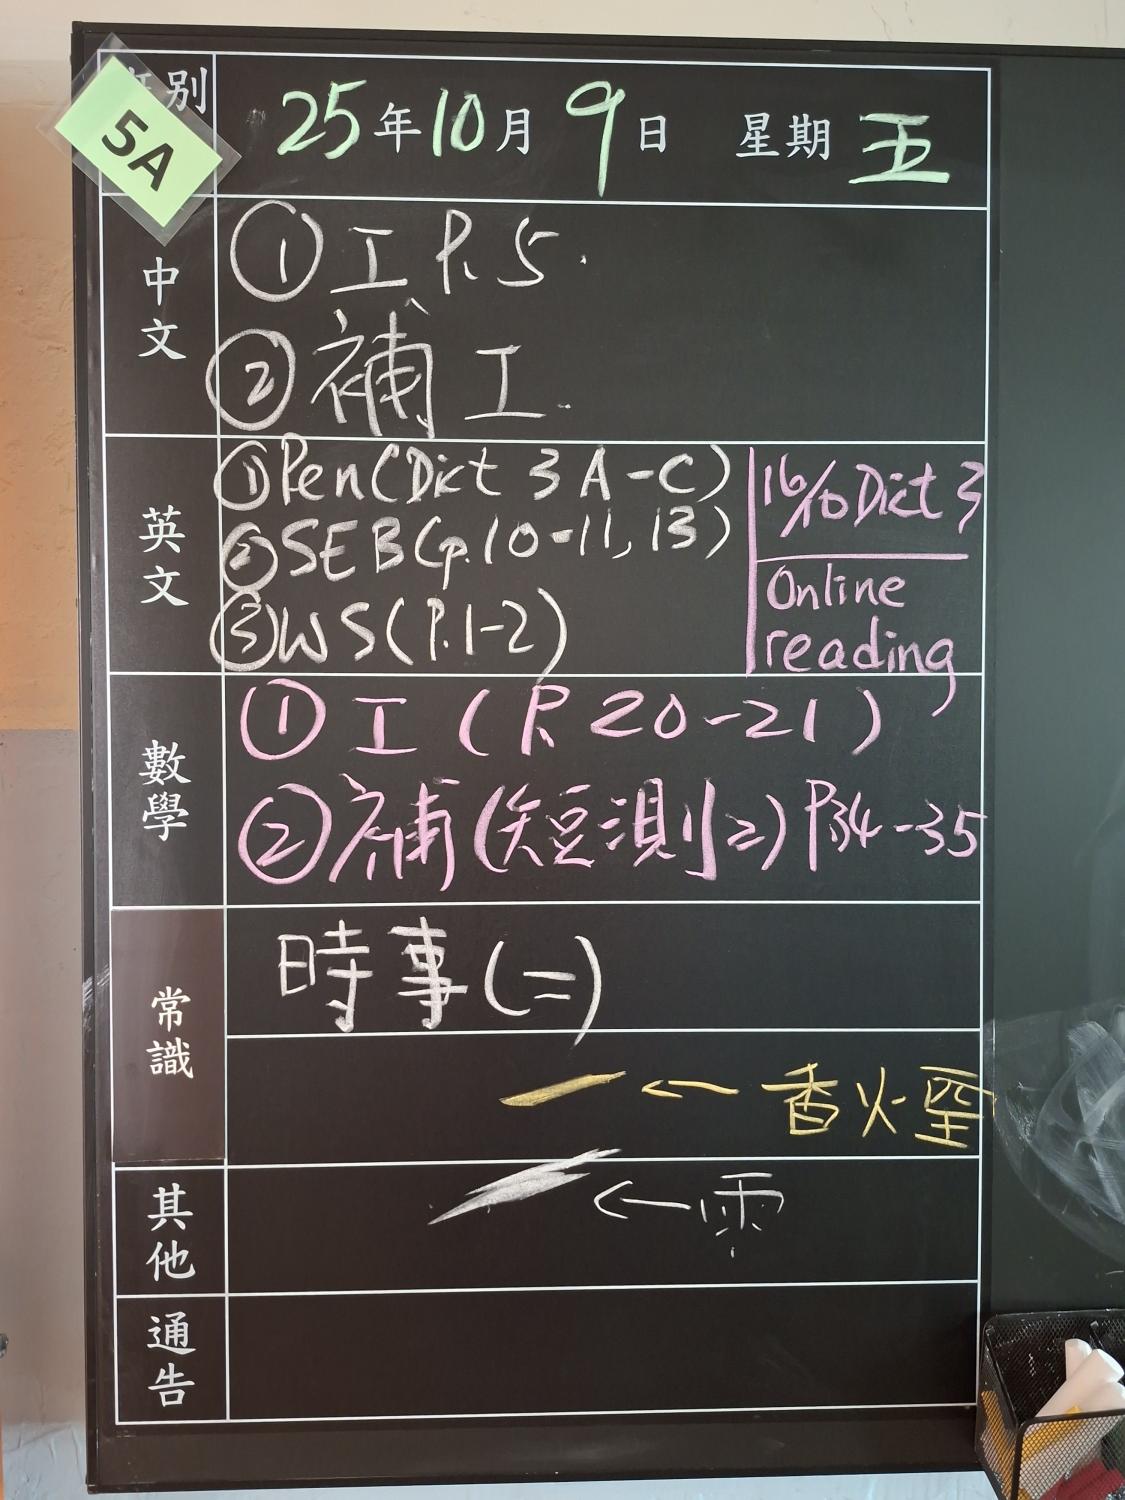 別
5A
25年10月9日 星期五
中文
① 工 P.5.
② 補工.
英文
① Pen (Dict 3 A-C)
② SEB (p.10-11, 13)
③ WS (P.1-2)
16/10 Dict 3
Online
reading
數學
① 工 (P. 20-21)
② 補 (短測2) P.34-35
常識
時事(二)
← 香火
其他
←
通告